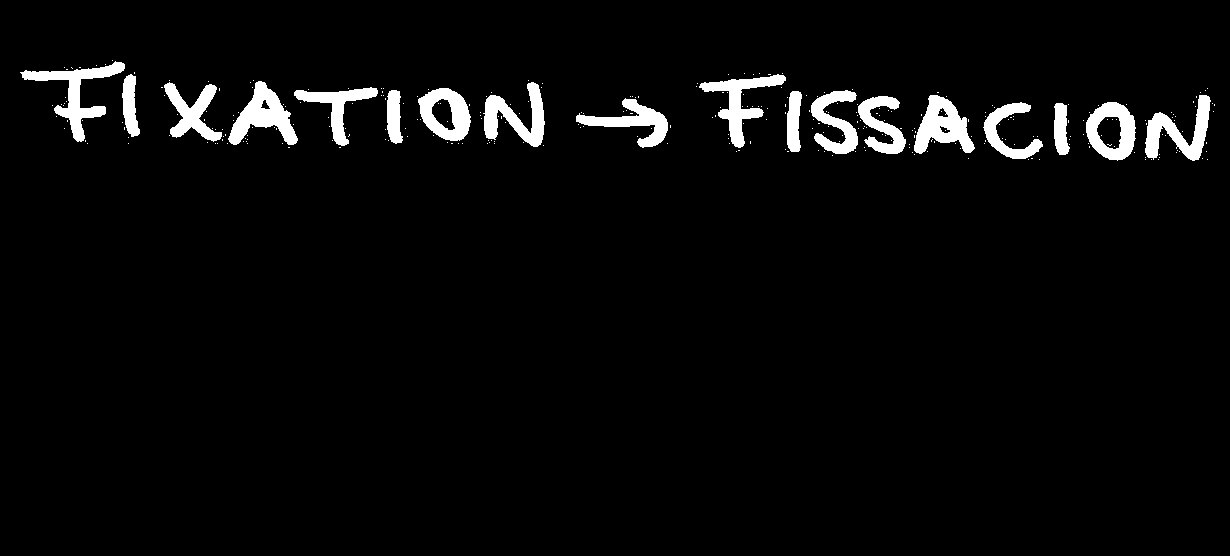 FIXATION → FISSACION